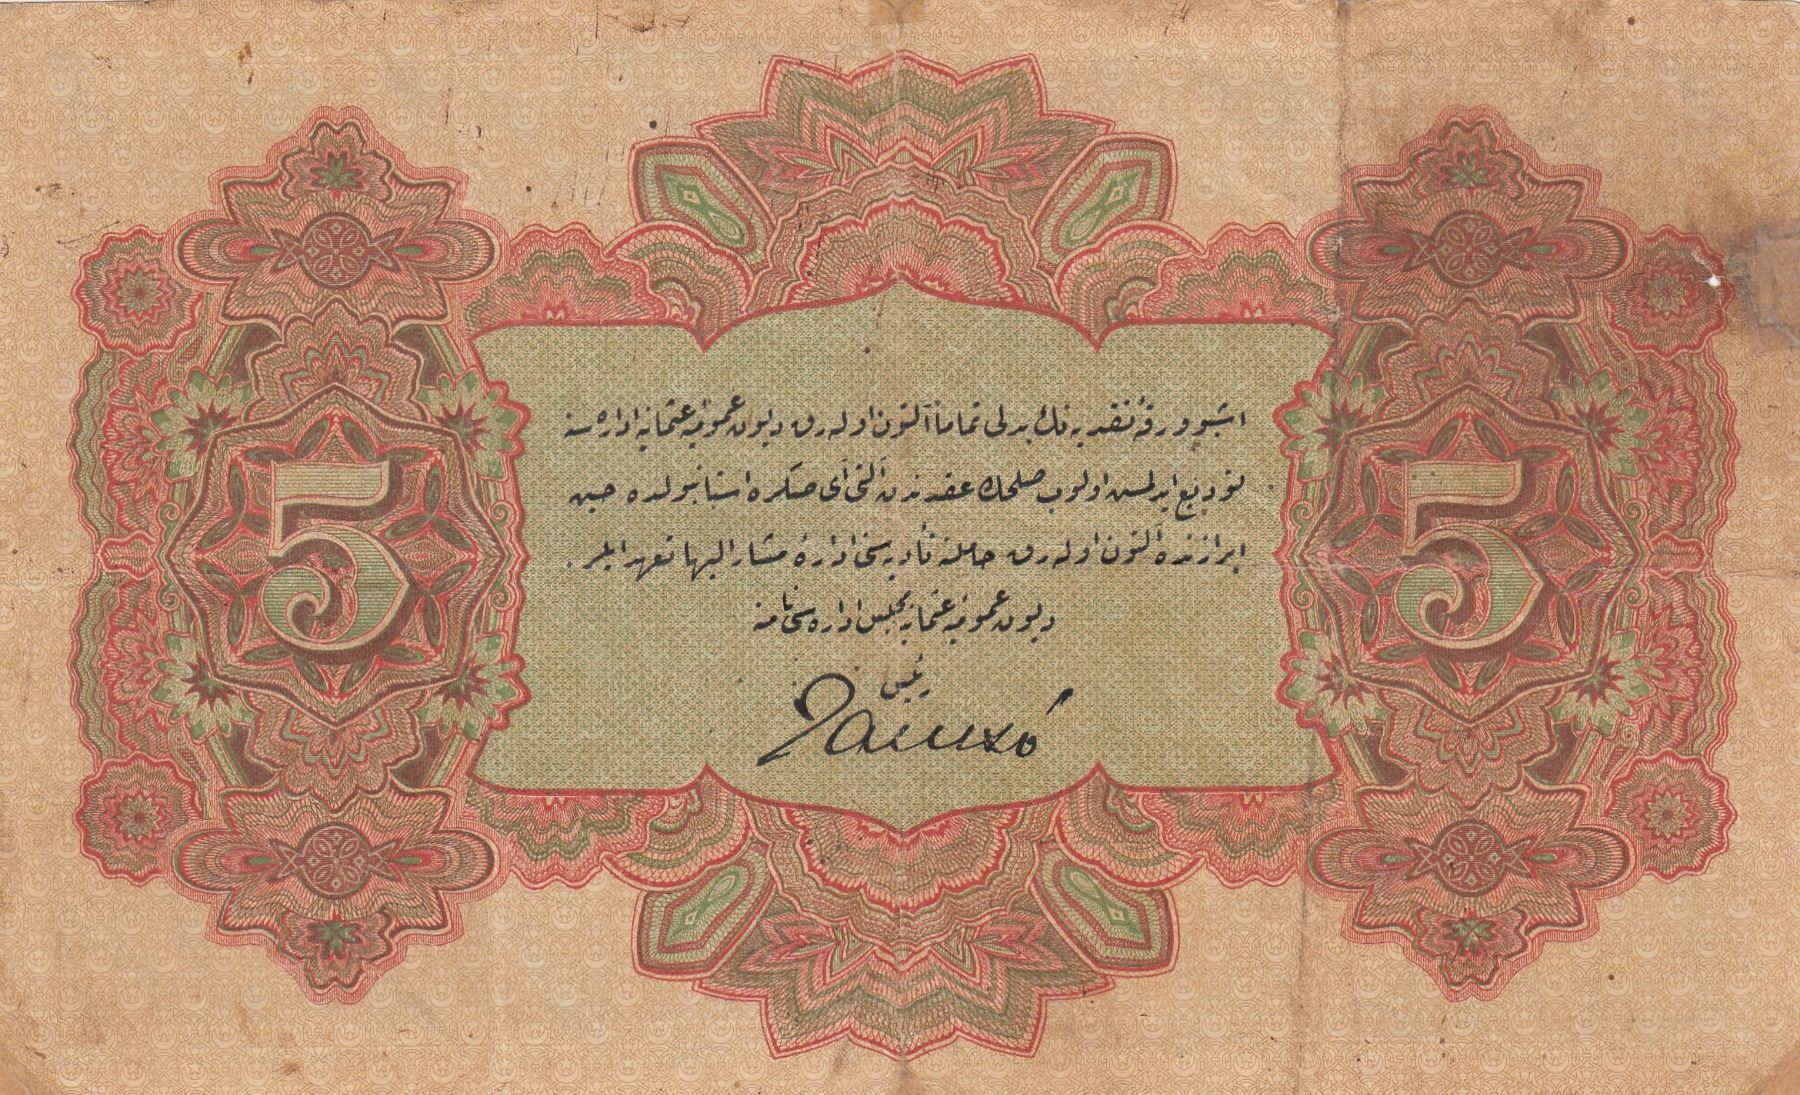 اشبو ورقۀ نقدیه نك بدلی تماماً آلتون اوله رق دیون عمومیۀ عثمانیه اداره سنه
تودیع ایدلمش اولوب صلحك عقدندن آلتی آی صکره استانبولده حین
ابرازنده آلتون اوله رق حاملنه تأدیه سنی ادارۀ مشار الیها تعهد ایلر .
دیون عمومیۀ عثمانیه مجلس اداره سی نامنه
رئیس
5 5